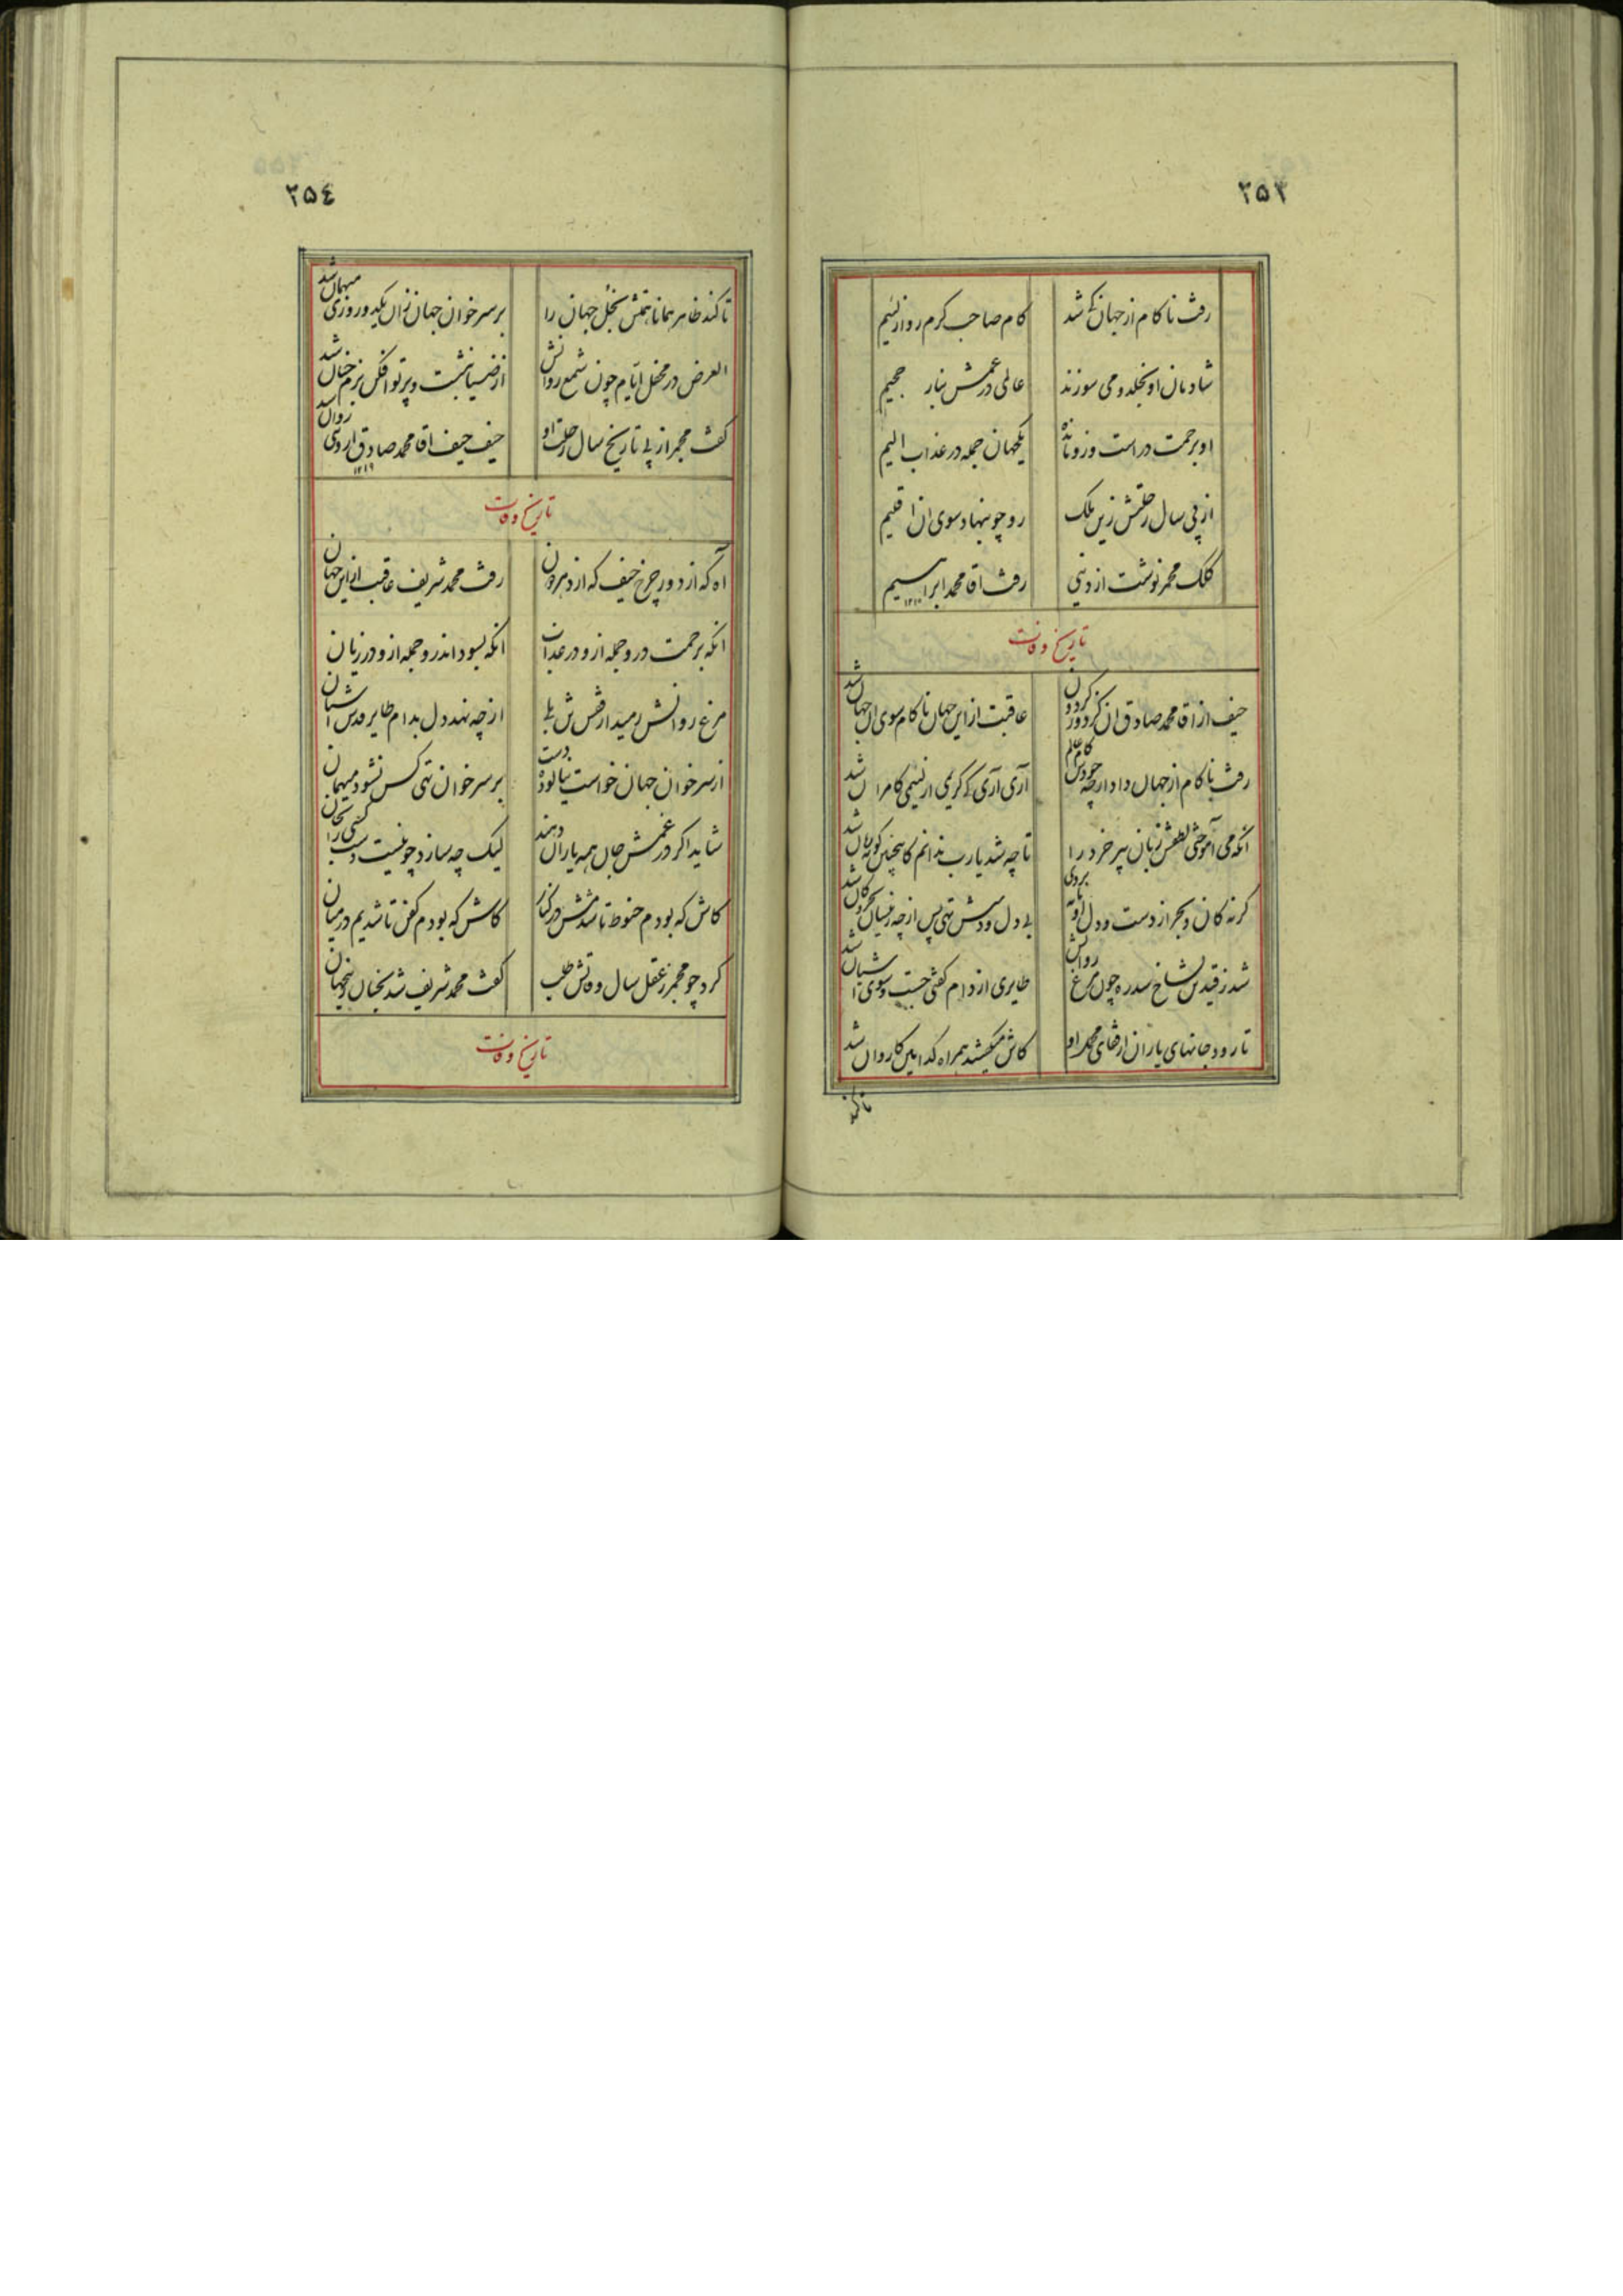 ۲۵۳
رفت ناکام از جهان که شد کام صاحب کرم روا ز لئیم
شادمان او بخلد و می سوزند عالمی در غمش بنار جحیم
او برحمت در است وز و مانده یکجهان جمله در عذاب الیم
از پی سال رحلتش زین ملک رو چو بنهاد سوی ان اقلیم
کلک مجمر نوشت از دنیی رفت اقا محمد ابراهیم
۱۲۱۰
تاریخ وفات
حیف از اقا محمد صادق ان کز دور گردون عاقبت از این جهان ناکام سوی ان جهان شد
رفت ناکام از جهان داد ارچه جودش کام عالم آری آری کی کریمی از لئیمی کامران شد
انکه می آموختی لطفش زبان پیر خرد را تا چه شد یارب ندانم کاینچنین کوته زبان شد
گر نه کان و بحر از دست و دل او مایه بردی بی دل و دستش تهی پس از چه زینسان بحر و کان شد
شد ز قید تن بشاخ سدره چون مرغ روانش طایری از دام گفتی جست و سوی اشیان شد
تا رود جانهای یاران از قفای محمل او کاش میگفتند همراه کدامین کاروان شد
تا کند
۲۵۴
تا کند ظاهر همانا همتش بخل جهان را بر سر خوان جهان زان یکدو روزی میهمان شد
الغرض در محفل ایام چون شمع روانش از ضیا بنشست و پرتو افکن بزم جنان شد
گفت مجمر از پی تاریخ سال رحلت او حیف حیف اقا محمد صادق از دنیی روان شد
۱۲۱۹
تاریخ وفات
اه که از دور چرخ حیف که از دهر دون رفت محمد شریف عاقبت از این جهان
انکه برحمت در و جمله ازو در عذاب انکه بسود اندر و جمله ازو در زیان
مرغ روانش رمید از قفس تن بلی از چه نهد دل بدام طایر قدس اشیان
از سر خوان جهان خواست نیالوده دست بر سر خوان تهی کس نشود میهمان
شاید اگر در غمش جان همه یاران دهند لیک چه سازد چو نیست دست کسی را بجان
کاش که بودم حنوط تا شدمش در کنار کاش که بودم کفن تا شدیم در میان
کرد چو مجمر ز عقل سال وفاتش طلب گفت محمد شریف شد بجنان زینجهان
تاریخ وفات